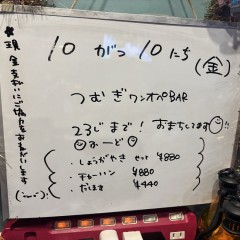 10がつ10にち(金)
つむぎワンオペBAR
23じまで！おまちしてます
ふーど
・しょうがやきセット ¥880
・チャーハン ¥880
・だしまき ¥440
※現金支払いにご協力をおねがいします